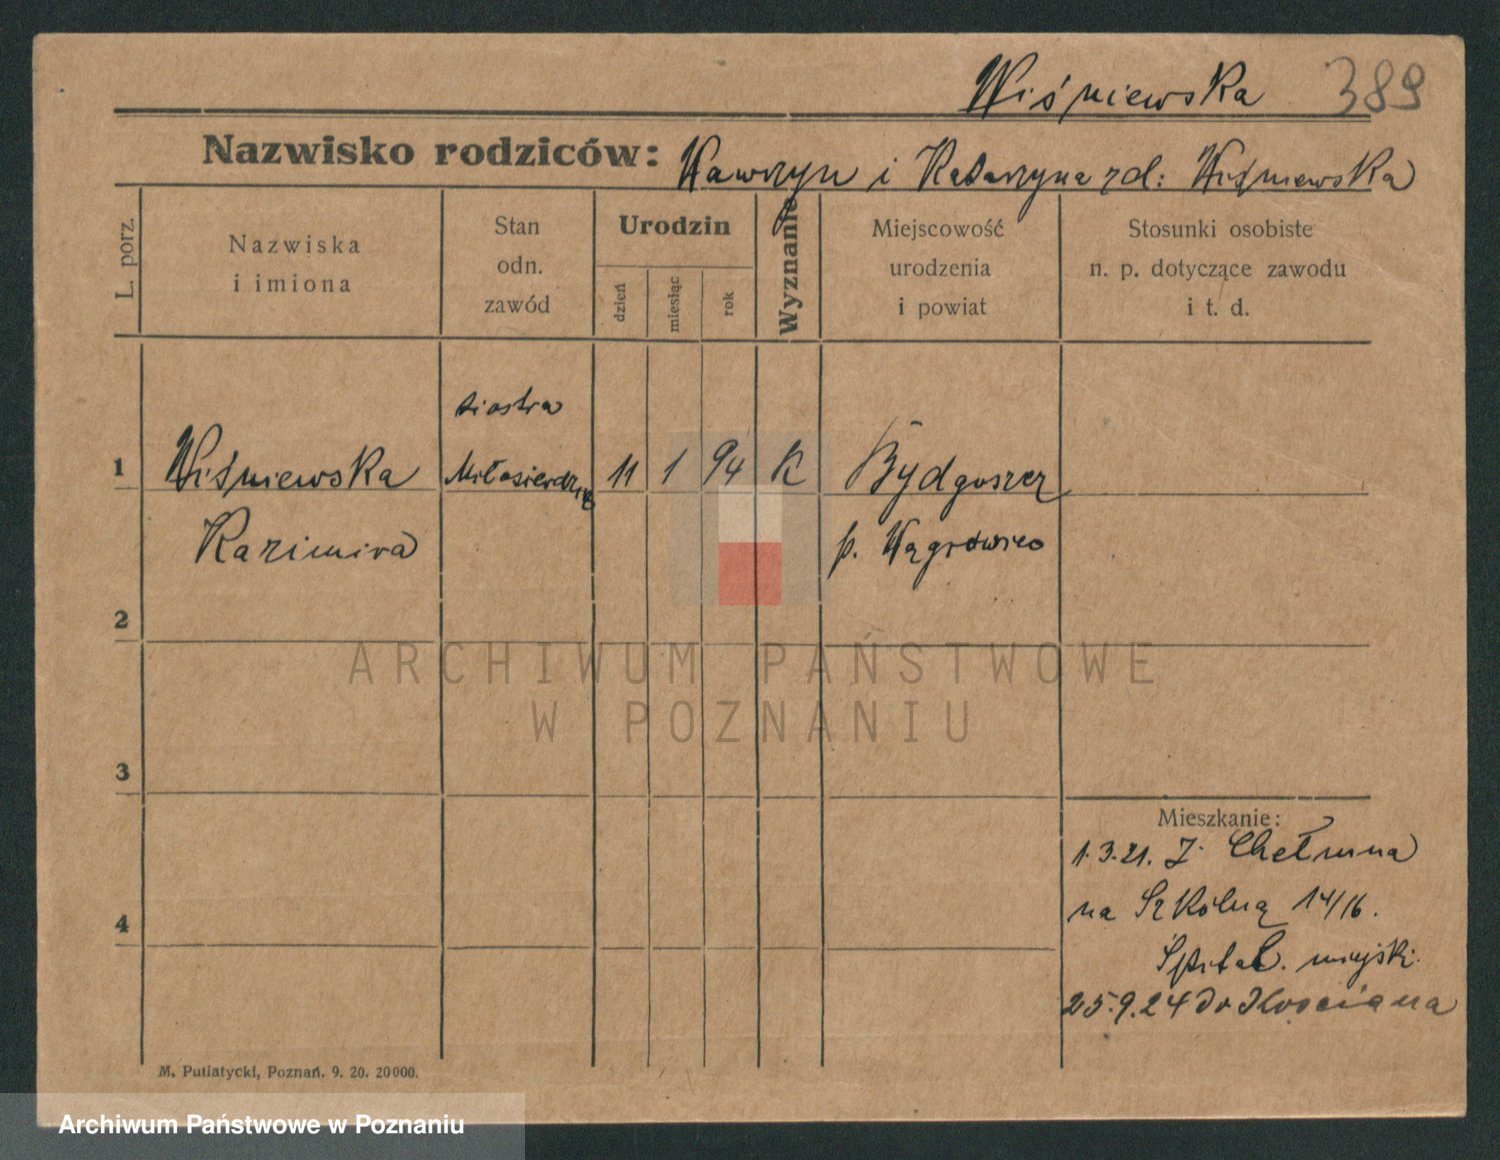 Wiśniewska 389
Nazwisko rodziców: Wawrzyn i Katarzyna zd: Wiśniewska
L. porz.
Nazwiska
i imiona
Stan
odn.
zawód
Urodzin
dzień
miesiąc
rok
Wyznanie
Miejscowość
urodzenia
i powiat
Stosunki osobiste
n. p. dotyczące zawodu
i t. d.
siostra
1 Wiśniewska Miłosierdzia 11 1 94 K Bydgoszcz
Kazimira p. Wągrówiec
2
3
4
Mieszkanie:
1.3.21. Z Chełmna
na Szkólną 14/16.
Szpital. miejski.
25.9.24 do Kościana
M. Putiatycki, Poznań. 9. 20. 20000.
ARCHIWUM PAŃSTWOWE
W POZNANIU
Archiwum Państwowe w Poznaniu